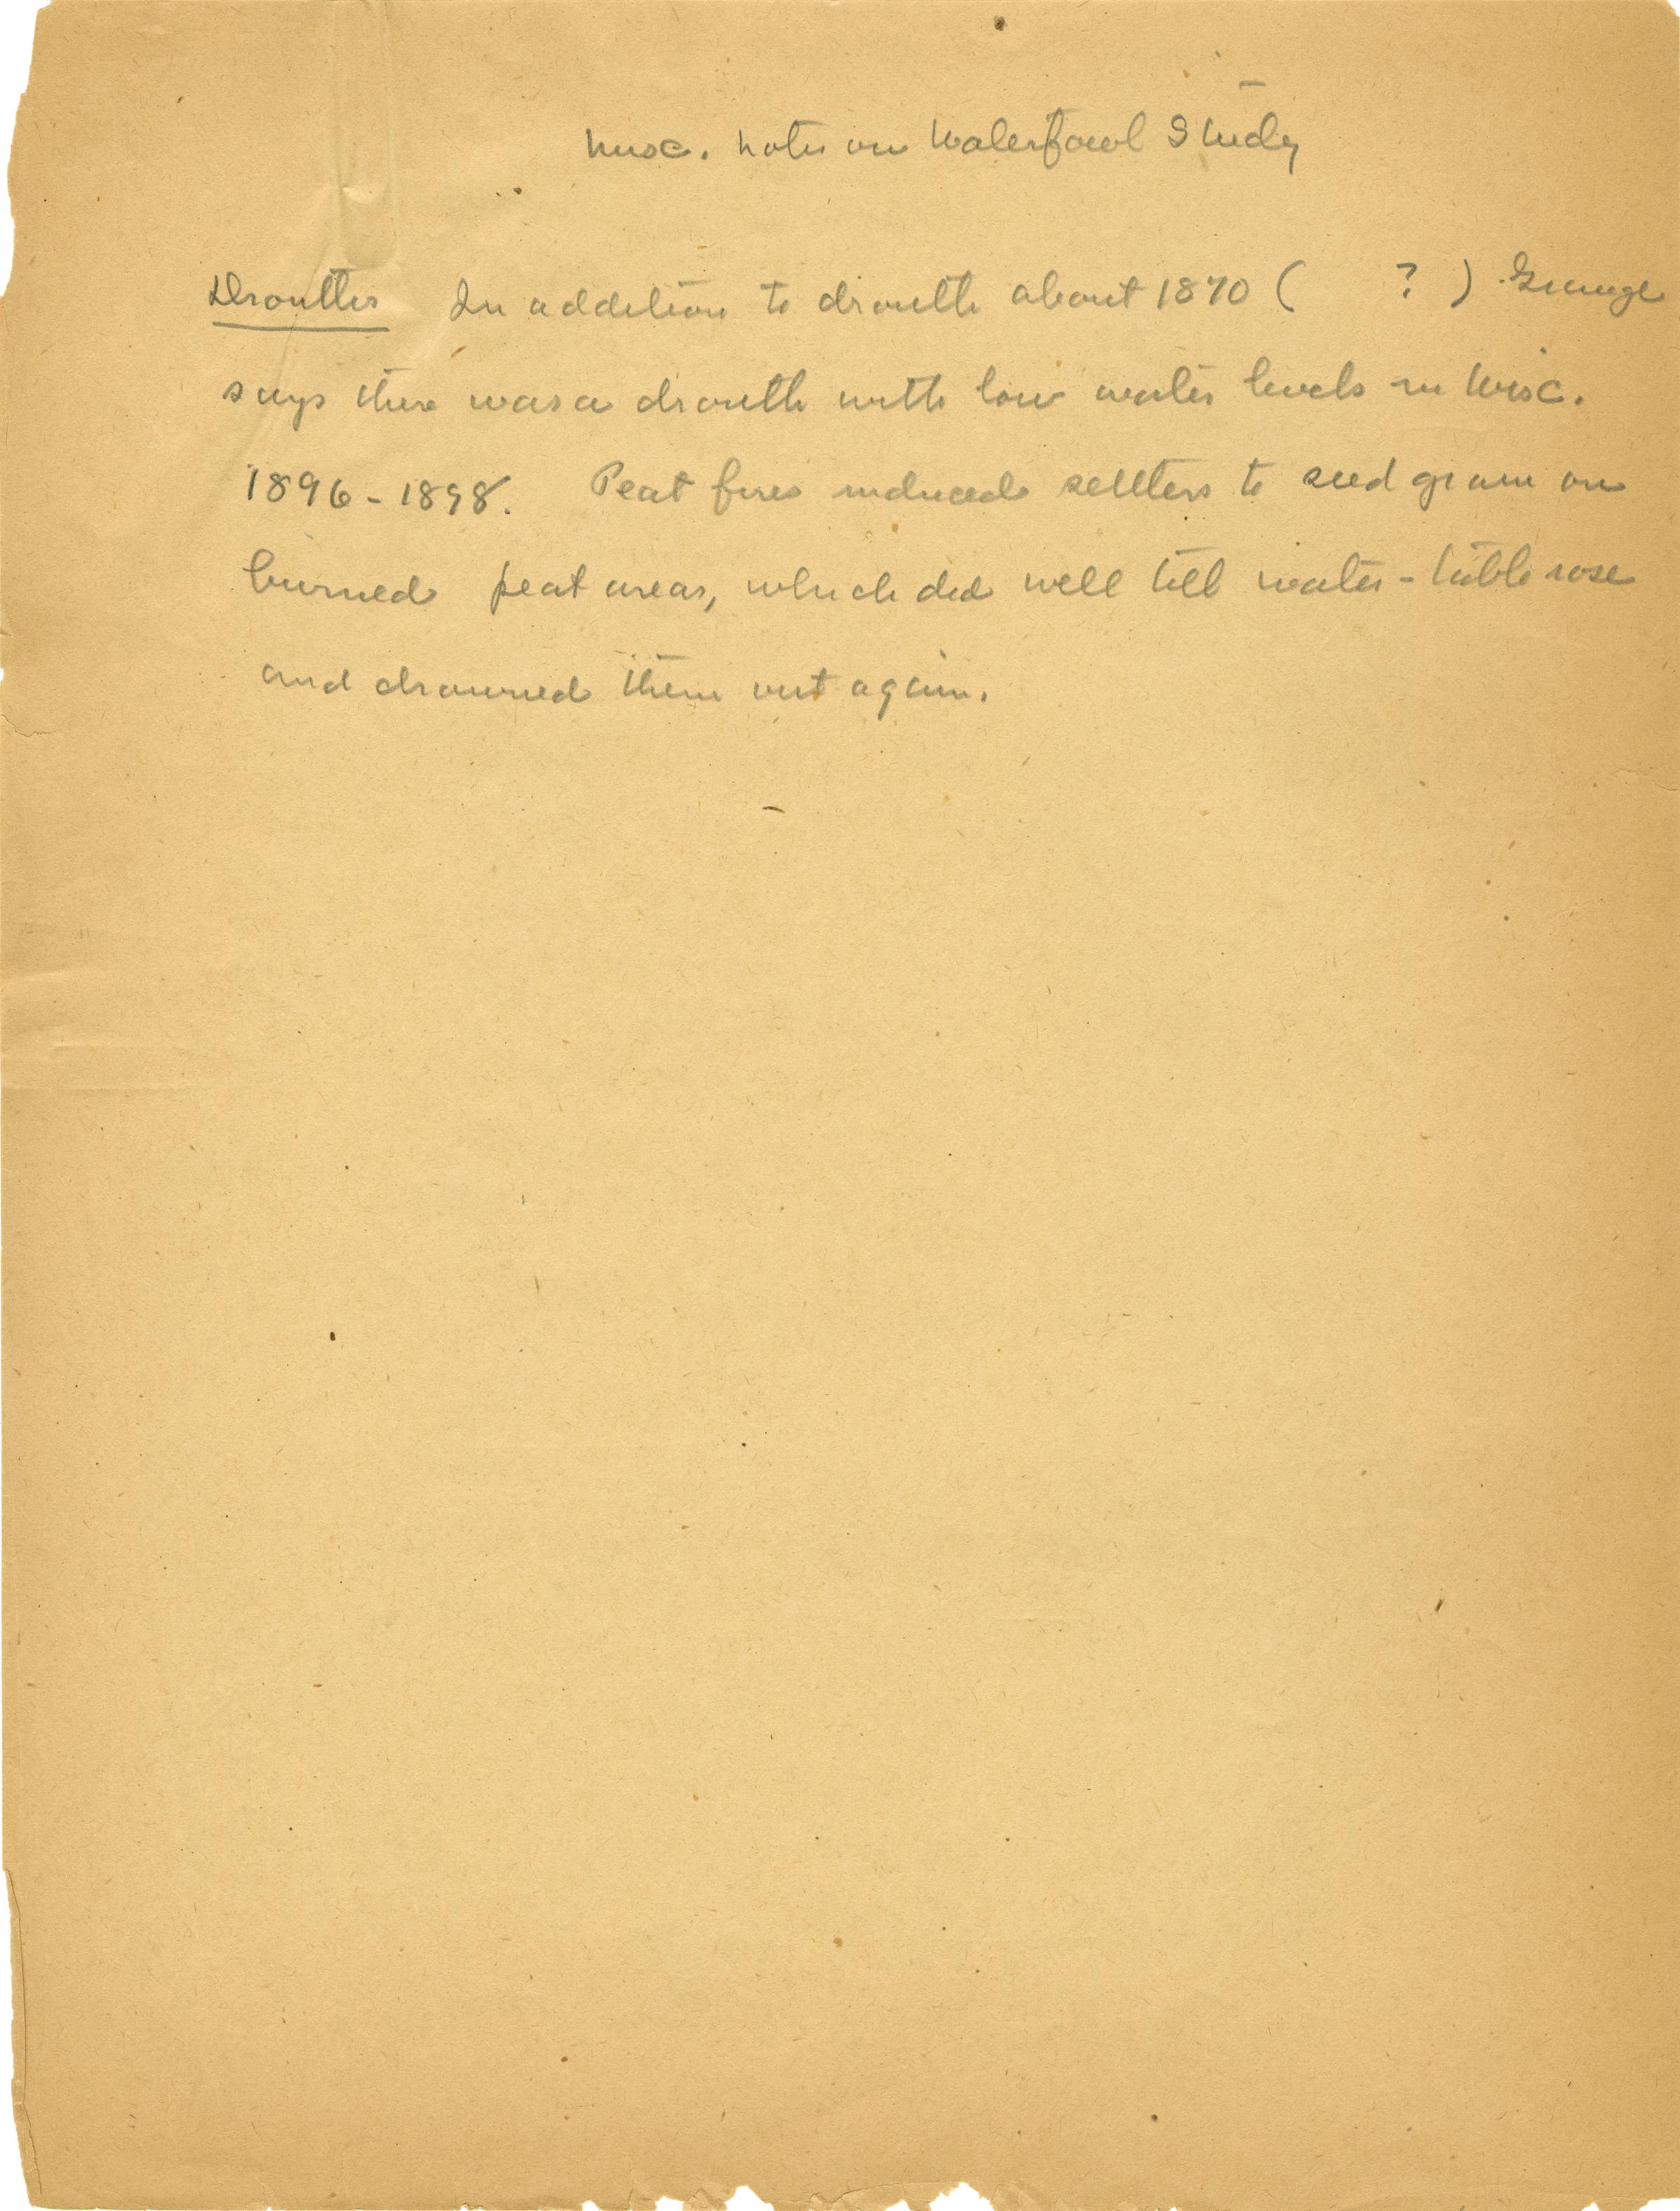 Misc. Notes on Waterfowl Study
Drouths In addition to drouth about 1870 ( ? ) Grange
says there was a drouth with low water levels in Wisc.
1896-1898. Peat fires induced settlers to seed grain on
burned peat areas, which did well till water-table rose
and drowned them out again.